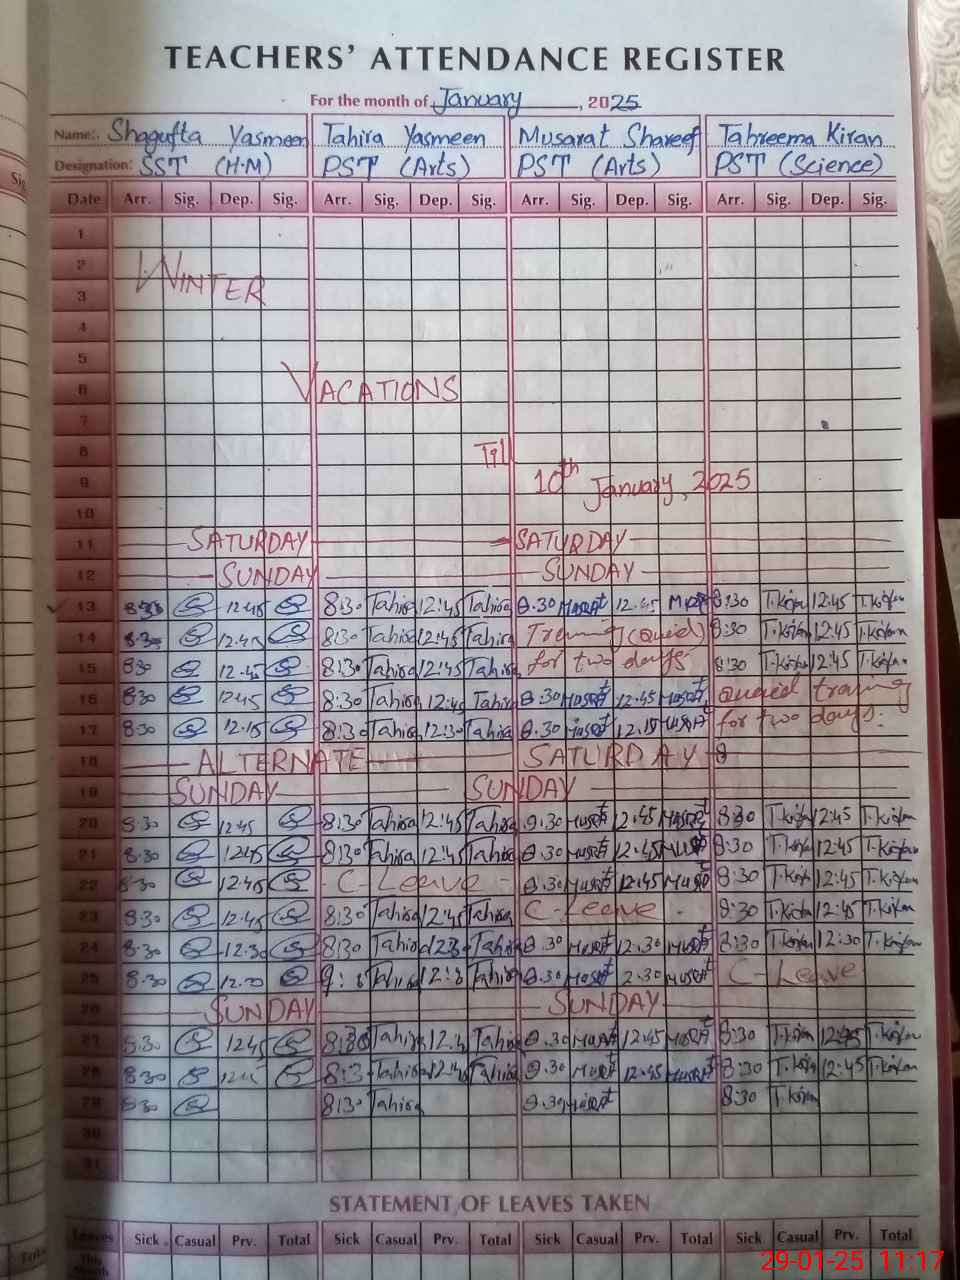 TEACHERS' ATTENDANCE REGISTER
For the month of January, 2025
Name: Shagufta Yasmeen Tahira Yasmeen Musarat Shareef Tahreema Kiran
Designation: SST (H·M) PST (Arts) PST (Arts) PST (Science)
Date Arr. Sig. Dep. Sig. Arr. Sig. Dep. Sig. Arr. Sig. Dep. Sig. Arr. Sig. Dep. Sig.
1
2
WINTER
3
4
5
6 VACATIONS
7
8 Til
9 10th January, 2025
10
11 SATURDAY SATURDAY
12 SUNDAY SUNDAY
13 12:45 8:30 Tahira 12:45 Tahira 8.30 Musrat 12.45 8:30 T.Kiran 12:45 T.Kiran
14 8:30 12:45 8:30 Tahira 12:45 Tahira Training (Quaid) 8:30 T.Kiran 12:45 T.Kiran
15 8:30 12:45 8:30 Tahira 12:45 Tahira for two days 8:30 T.Kiran 12:45 T.Kiran
16 8:30 12:45 8:30 Tahira 12:45 Tahira 8.30 Musrat 12.45 Musrat Quaid training
17 8:30 12:15 8:30 Tahira 12:30 Tahira 8.30 Musrat 12.15 Musrat for two days.
18 ALTERNATE SATURDAY
19 SUNDAY SUNDAY
20 8:30 12:45 8:30 Tahira 12:45 Tahira 8.30 Musrat 12.45 Musrat 8:30 T.Kiran 12:45 T.Kiran
21 8:30 12:45 8:30 Tahira 12:45 Tahira 8.30 Musrat 12.45 Musrat 8:30 T.Kiran 12:45 T.Kiran
22 8:30 12:45 C-Leave 8.30 Musrat 12.45 Musrat 8:30 T.Kiran 12:45 T.Kiran
23 8:30 12:45 8:30 Tahira 12:45 Tahira C-Leave 8:30 T.Kiran 12:45 T.Kiran
24 8:30 12:30 8:30 Tahira 12:30 Tahira 8.30 Musrat 12.30 Musrat 8:30 T.Kiran 12:30 T.Kiran
25 8:30 Tahira Tahira 8.30 Musrat 2.30 Musrat C-Leave
26 SUNDAY SUNDAY
27 8:30 12:45 8:30 Tahira Tahira 8.30 Musrat 12.45 Musrat 8:30 T.Kiran 12:45 T.Kiran
28 8:30 Tahira 12:45 Tahira 8.30 Musrat 12.45 Musrat 8:30 T.Kiran 12:45 T.Kiran
29 8:30 8:30 Tahira 8.30 Musrat 8:30 T.Kiran
30
31
STATEMENT OF LEAVES TAKEN
Leaves Sick Casual Prv. Total Sick Casual Prv. Total Sick Casual Prv. Total Sick Casual Prv. Total
This Month
29-01-25 11:17